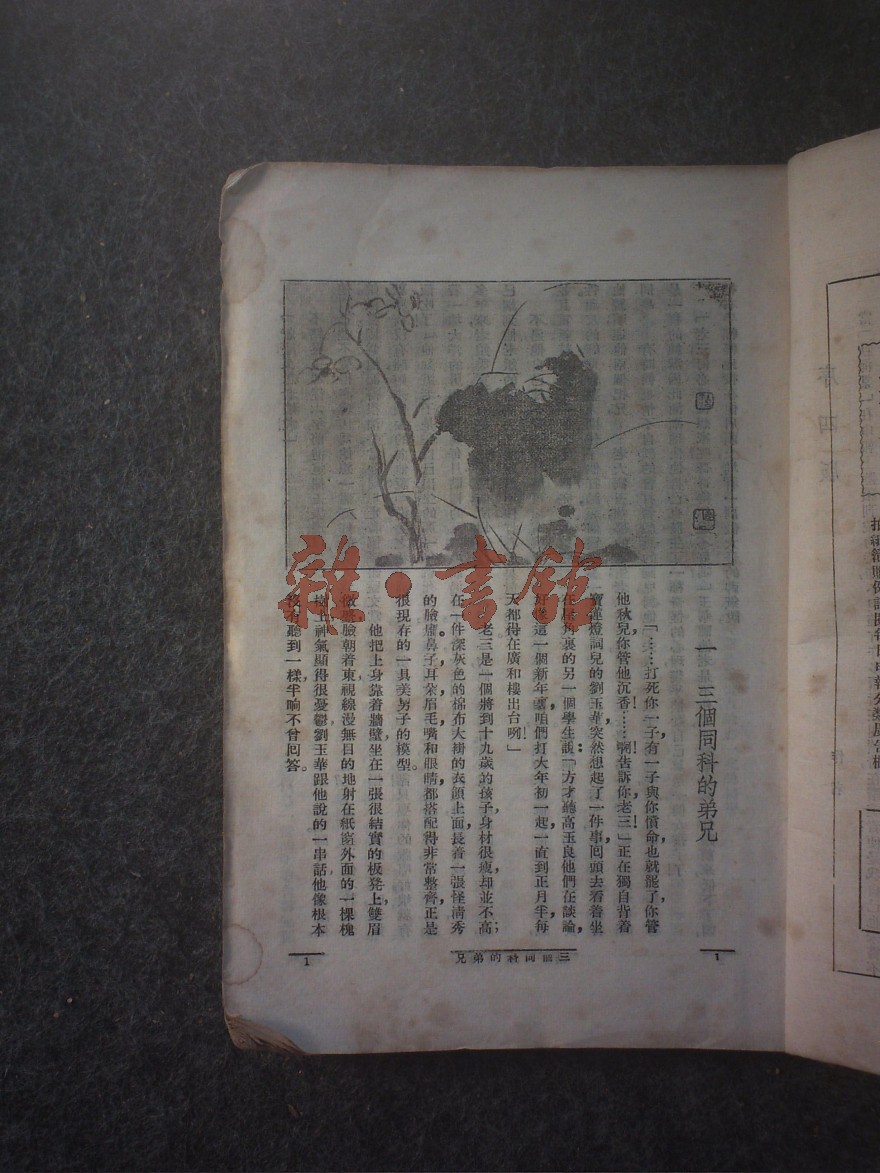 一 三個同科的弟兄
「……打死你一子，有一子與你償命，也就罷了，你管
他秋兒，你管他沉香！……啊！告訴你，老三！」正在獨自背着
寶蓮燈詞兒的劉玉華，突然想起了一件事，回頭去看着坐
在屋角裏的另一個學生說：「方才聽高玉良他們在談論，
好像這一個新年裏，咱們打大年初一起，一直到正月半，每
天都得在廣和樓出台咧！」
老三是一個將到十九歲的孩子，身材很瘦，却並不高；
在一件深灰色的棉布大褂的衣領上面，長着一張怪清秀
的臉龐。鼻子，耳朵，眉毛，嘴和眼睛，都搭配得非常整齊，正是
很現存的一具美男子的模型。
他把上身靠着牆壁，坐在一張很結實的板凳上，雙眉
微蹙，臉朝着東，視線漫無目的地射在紙窗外面的一棵槐
樹上，神氣顯得很憂鬱，劉玉華跟他說的一串話，他像根本
沒有聽到一樣，半晌不曾回答。
1
三個同科的弟兄
1
雜·書館